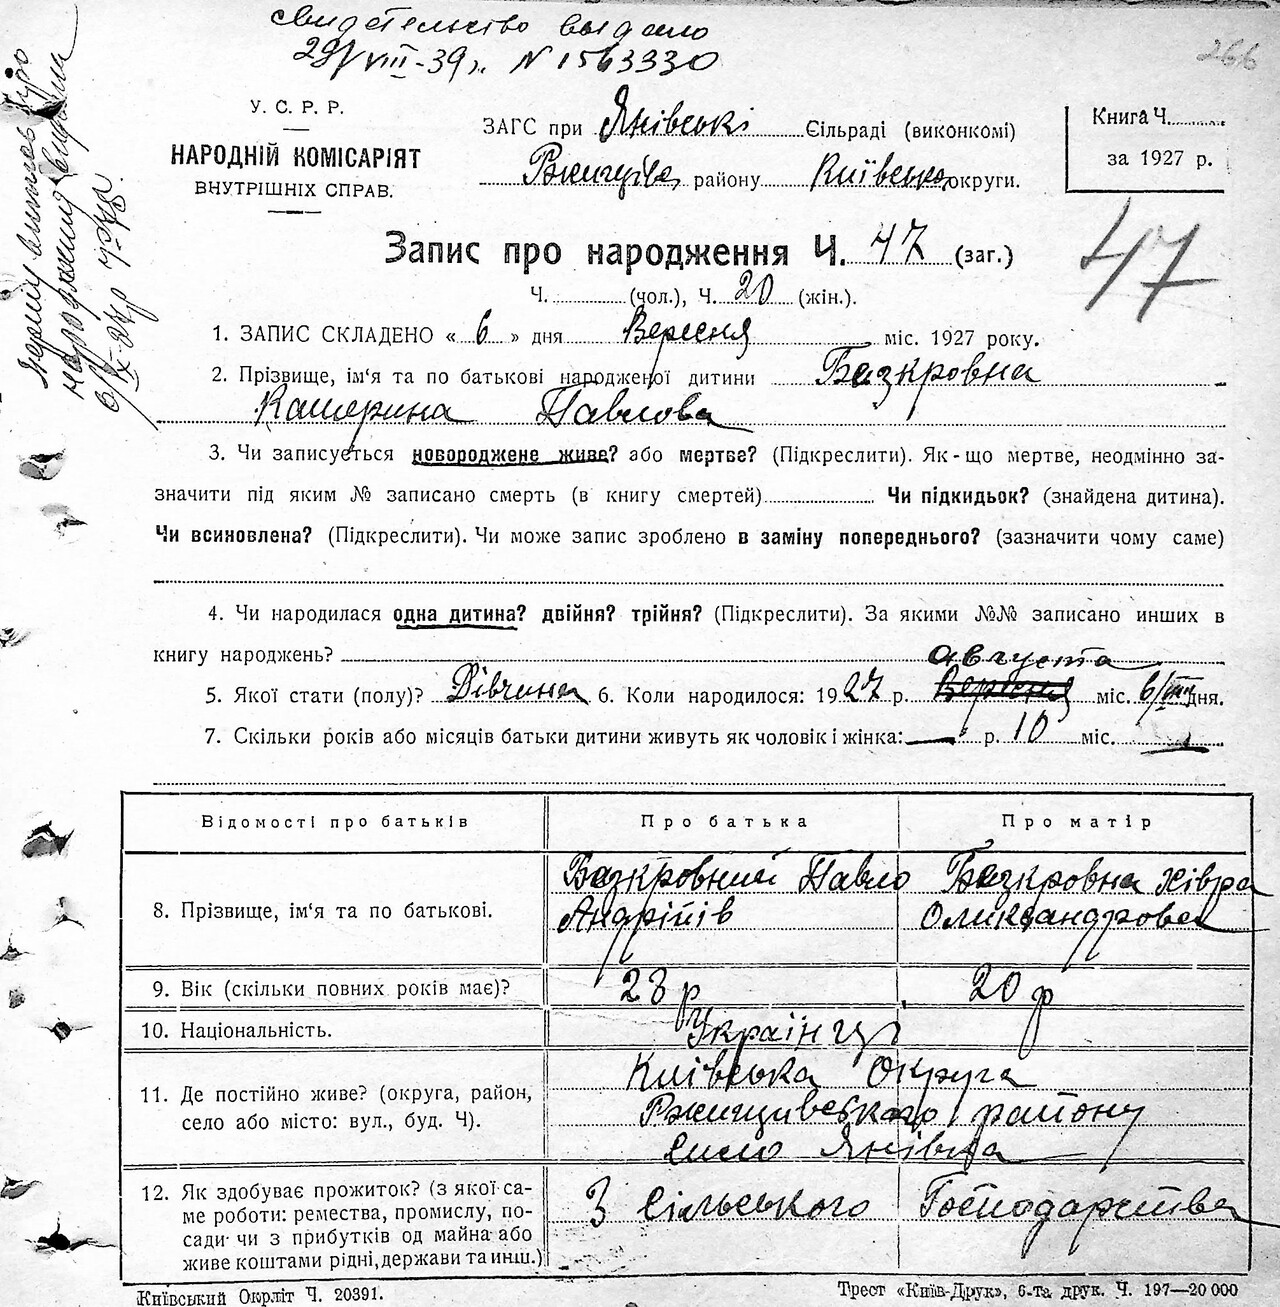 свидетельство выдано
29/VIII-39г. N 1563330
266
Перший витяг про
народження видана
6/IX-27р
У. С. Р. Р.
НАРОДНІЙ КОМІСАРІЯТ
ВНУТРІШНІХ СПРАВ.
ЗАГС при Янівські Сільраді (виконкомі)
Ржищів району Київсько округи.
Книга Ч.
за 1927 р.
47
Запис про народження Ч. 47 (заг.)
Ч. (чол.), Ч. 20 (жін.).
1. ЗАПИС СКЛАДЕНО « 6 » дня Вересня міс. 1927 року.
2. Прізвище, ім'я та по батькові народженої дитини Базкровна
Катерина Павлова
3. Чи записується новороджене живе? або мертве? (Підкреслити). Як-що мертве, неодмінно за-
значити під яким № записано смерть (в книгу смертей) Чи підкидьок? (знайдена дитина).
Чи всиновлена? (Підкреслити). Чи може запис зроблено в заміну попереднього? (зазначити чому саме)
4. Чи народилася одна дитина? двійня? трійня? (Підкреслити). За якими №№ записано инших в
книгу народжень?
августа
5. Якої стати (полу)? Дівчина 6. Коли народилося: 1927 р. Вересня міс. 6/VIII дня.
7. Скільки років або місяців батьки дитини живуть як чоловік і жінка: — р. 10 міс.
Відомості про батьків Про батька Про матір
8. Прізвище, ім'я та по батькові.
Базкровний Павло Базкровна Хівра
Андріїв Олександрова
9. Вік (скільки повних років має)? 23 р 20 р
10. Національність. Українці
11. Де постійно живе? (округа, район,
село або місто: вул., буд. Ч).
Київська Округа
Ржищивського району
село Янівка
12. Як здобуває прожиток? (з якої са-
ме роботи: ремества, промислу, по-
сади чи з прибутків од майна або
живе коштами рідні, держави та инш.)
З Сільського Господарства
Київський Окрліт Ч. 20391.
Трест «Київ-Друк», 6-та друк. Ч. 197—20 000